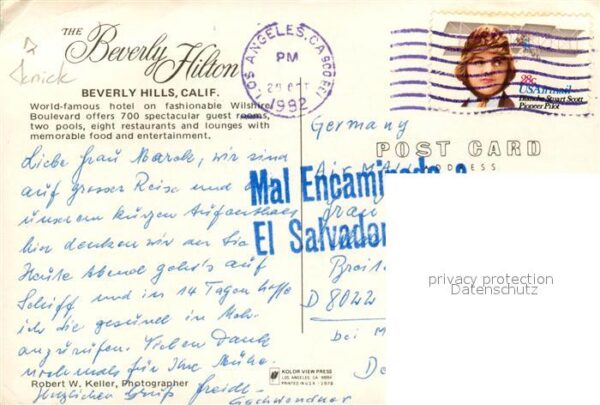 THE
Beverly Hilton
BEVERLY HILLS, CALIF.
World-famous hotel on fashionable Wilshire
Boulevard offers 700 spectacular guest rooms,
two pools, eight restaurants and lounges with
memorable food and entertainment.
LOS ANGELES, CA
PM
1982
28c
USAirmail
Blanche Stuart Scott
Pioneer Pilot
Germany
POST CARD
AIR MAIL
ADDRESS
Mal Encaminado a
El Salvador
Liebe Frau
wir sind
auf grosser Reise und
unserem kurzen Aufenthalt
hier denken wir an Sie
Heute Abend geht's auf
Schiff und in 14 Tagen hoffe
ich Sie gesund in
anzurufen. Vielen Dank
nochmals für Ihre Mühe.
Herzlichen Gruß
Frau
D 8022
bei M
privacy protection
Datenschutz
Robert W. Keller, Photographer
KOLOR VIEW PRESS
LOS ANGELES, CA
PRINTED IN U.S.A.